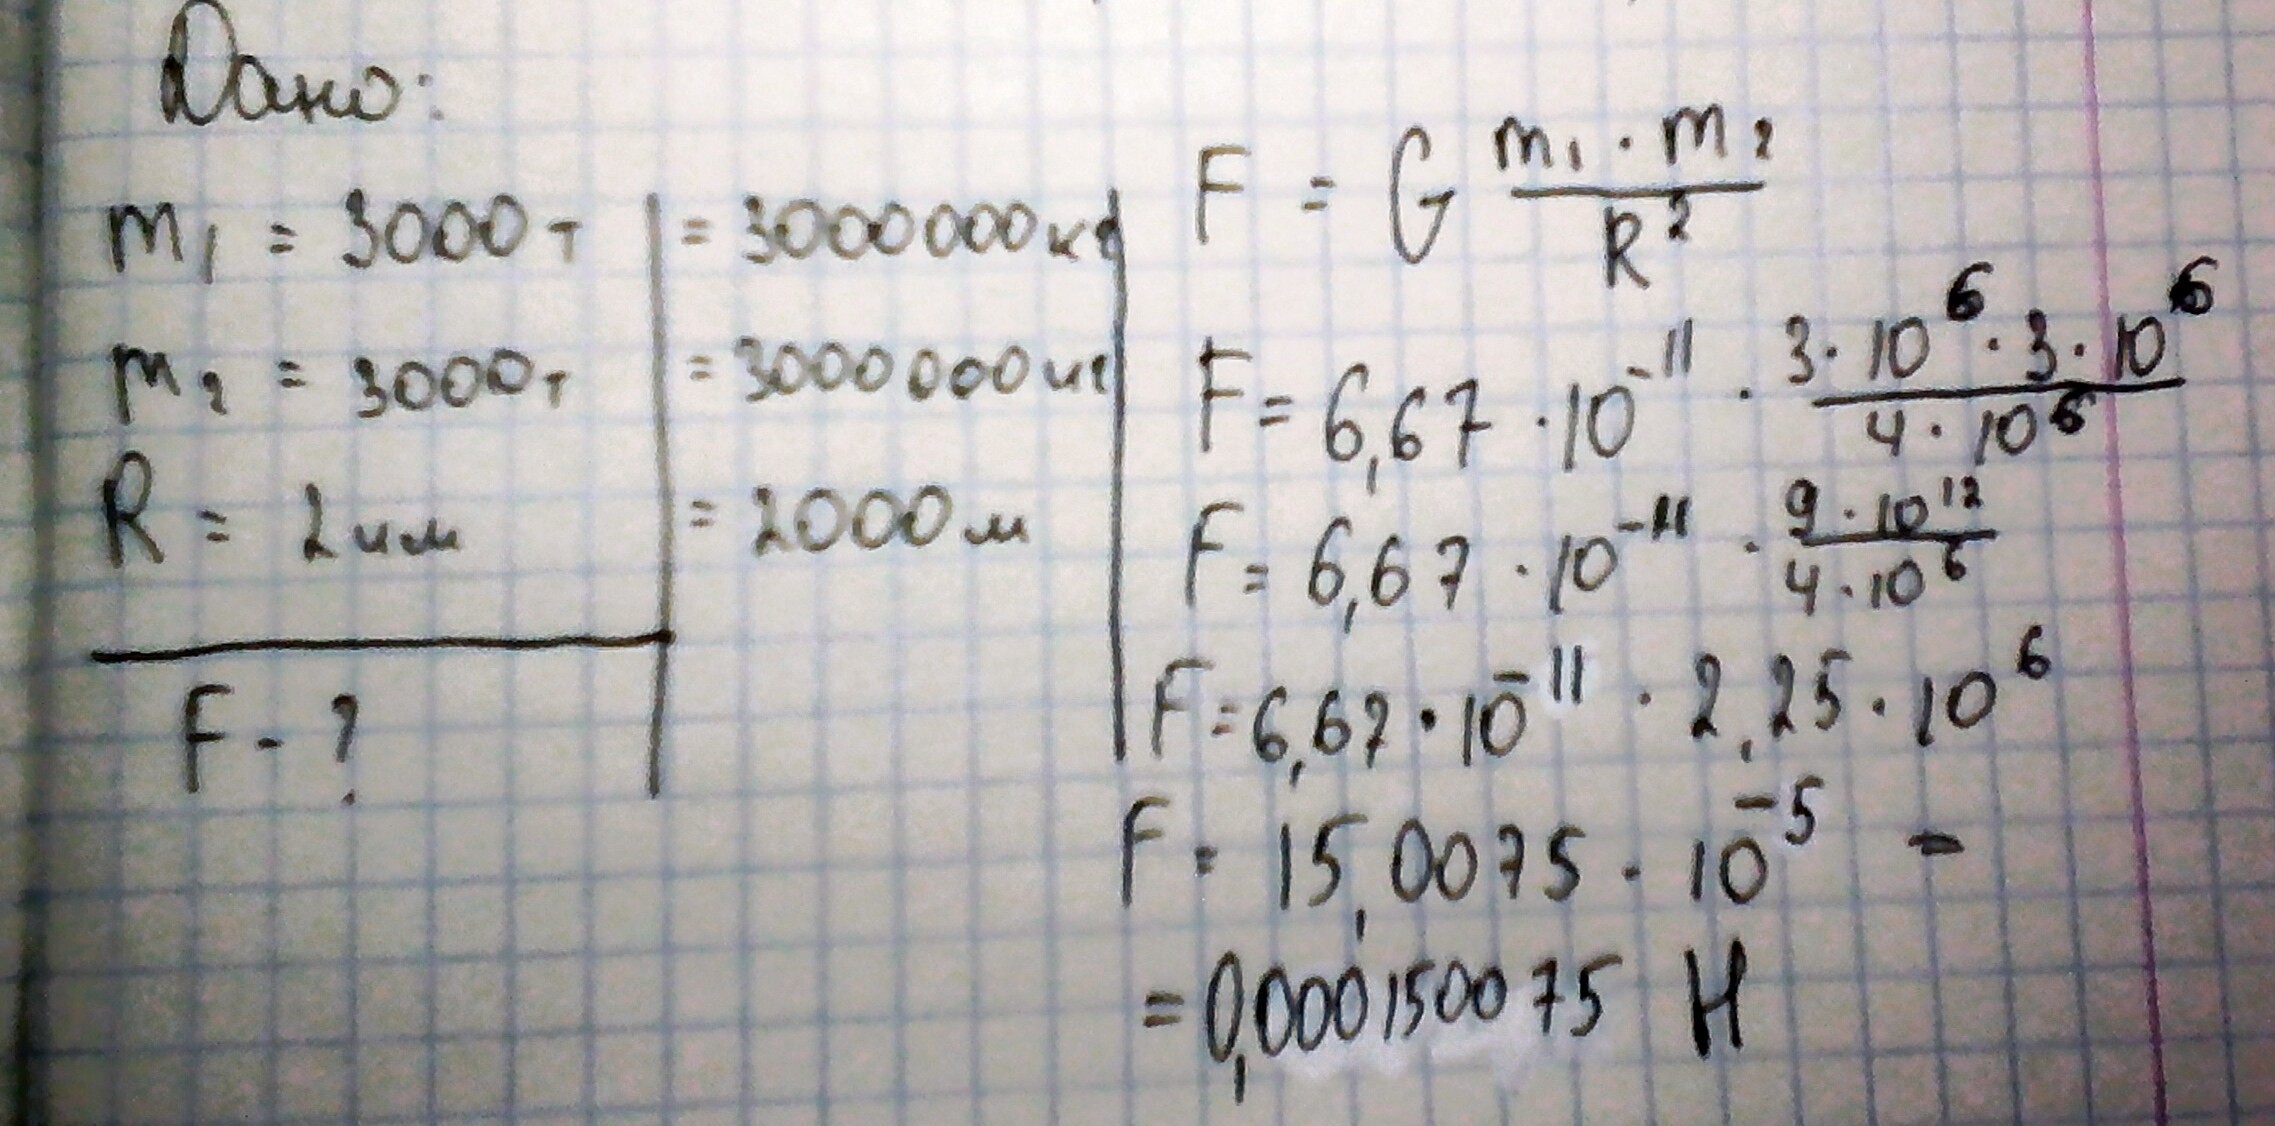 Дано:
m₁ = 3000 т | = 3000000 кг
m₂ = 3000 т | = 3000000 кг
R = 2 км | = 2000 м
F - ?
F = G (m₁ · m₂) / R²
F = 6,67 · 10⁻¹¹ · (3 · 10⁶ · 3 · 10⁶) / (4 · 10⁶)
F = 6,67 · 10⁻¹¹ · (9 · 10¹²) / (4 · 10⁶)
F = 6,67 · 10⁻¹¹ · 2,25 · 10⁶
F = 15,0075 · 10⁻⁵ =
= 0,000150075 Н